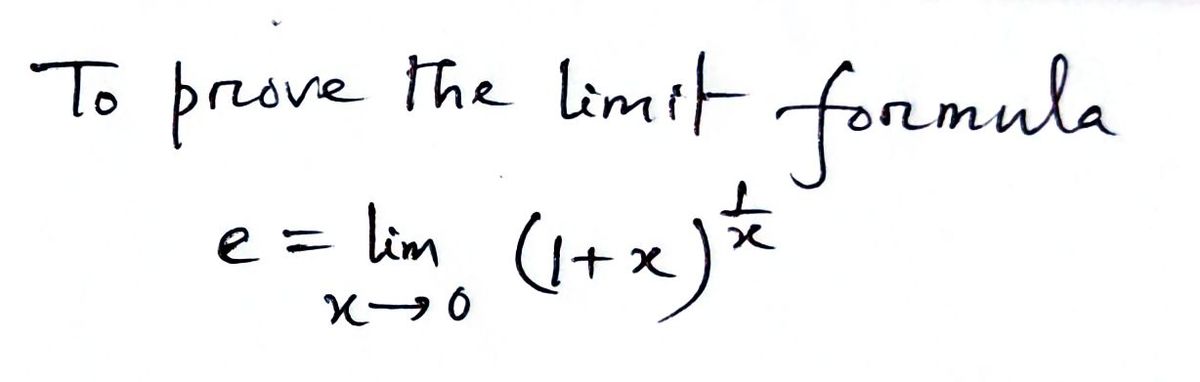 To prove the limit formula
e = lim (1+x)^{1/x}
x→0